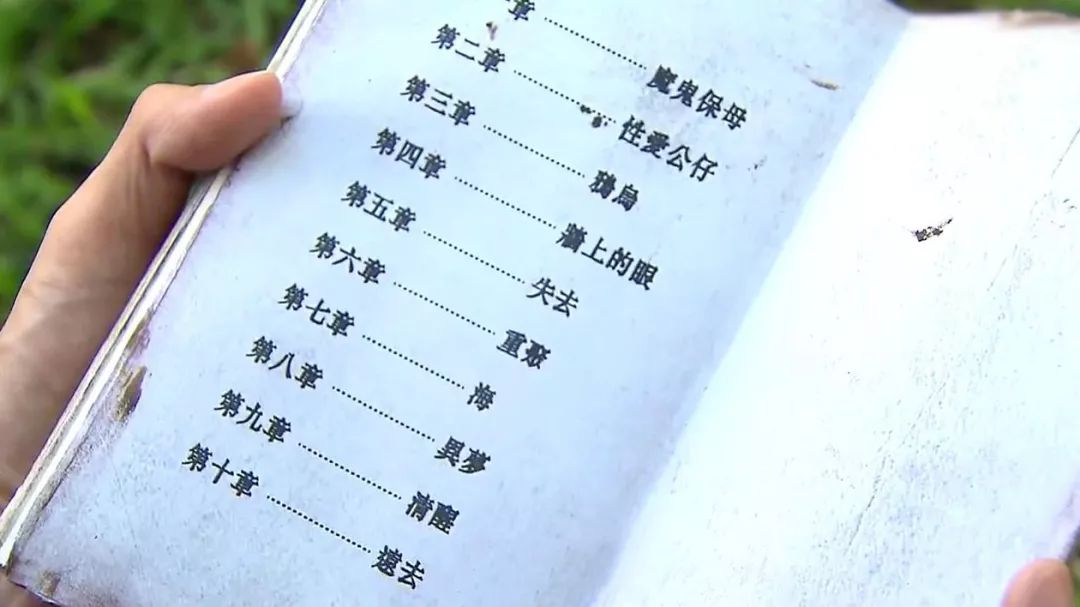 章……………魔鬼保母
第二章……………性愛公仔
第三章……………鴉烏
第四章……………牆上的眼
第五章……………失去
第六章……………重聚
第七章……………海
第八章……………異夢
第九章……………清醒
第十章……………遠去